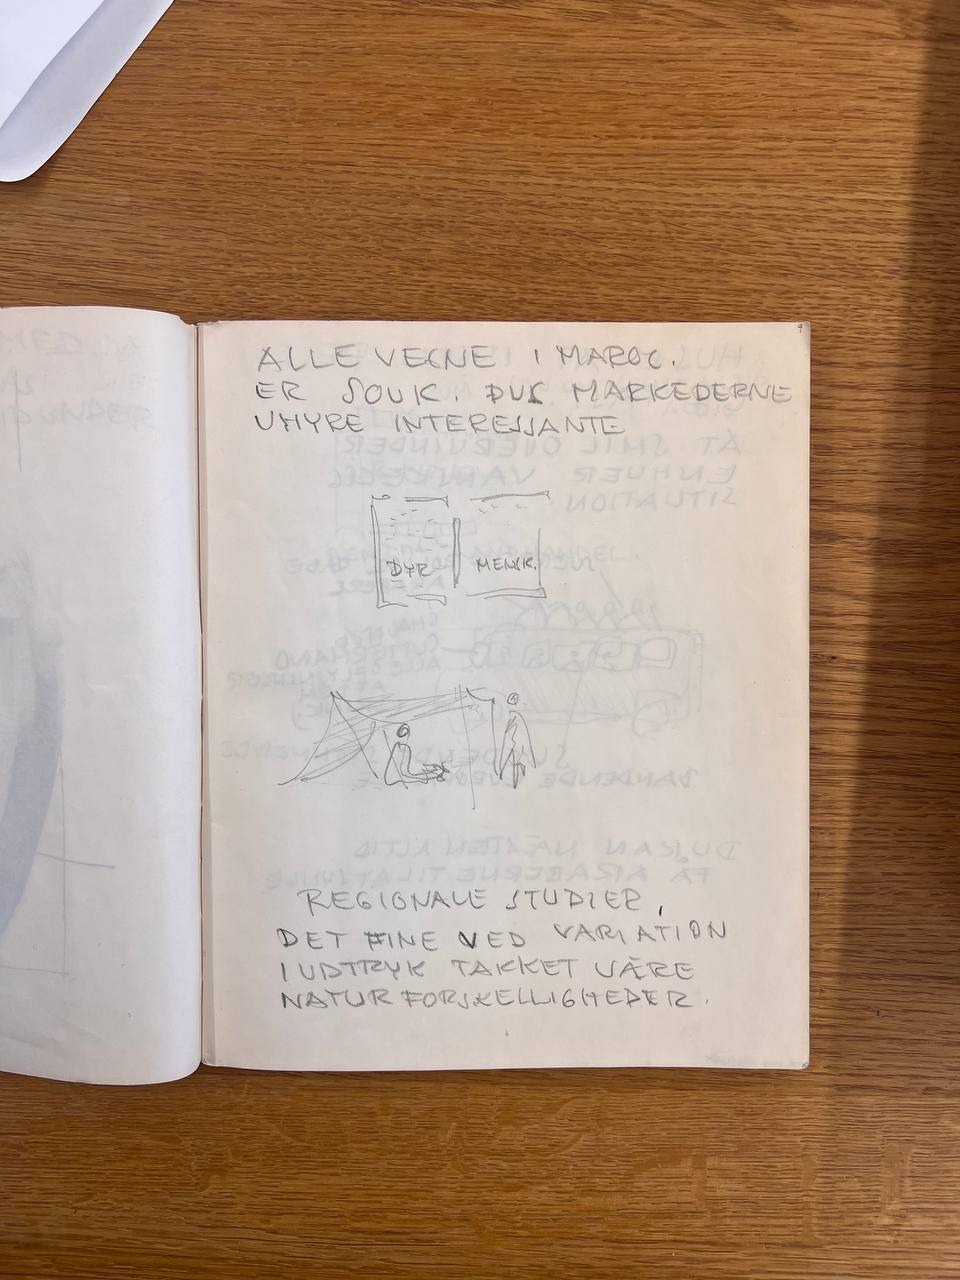 ALLE VEGNE I MAROC.
ER SOUK. DVS MARKEDERNE
UHYRE INTERESSANTE
DYR
MENSK.
REGIONALE STUDIER,
DET FINE VED VARIATION
I UDTRYK TAKKET VÆRE
NATURFORSKELLIGHEDER.